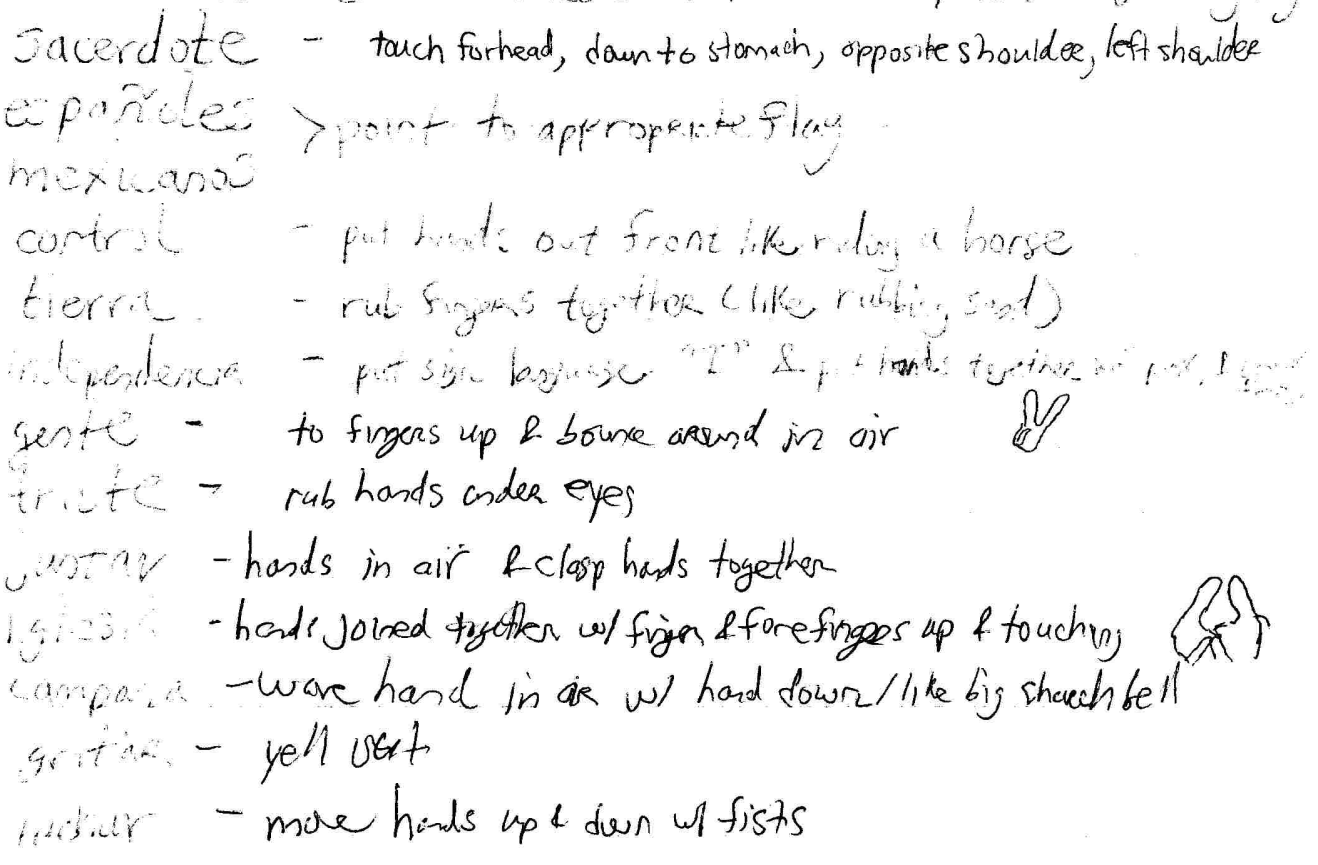 sacerdote - touch forhead, down to stomach, opposite shoulder, left shoulder
españoles
>point to approperate flag
mexicanos
control - put hands out front like riding a horse
tierra - rub fingers together (like rubbing seed)
independencia - put sign language "I" & put hands together
gente - to fingers up & bounce around in air
triste - rub hands under eyes
juntar - hands in air & clasp hands together
iglesia - hands joined together w/ finger & forefingers up & touching
campana - wave hand in air w/ hand down/like big church bell
gritar - yell
luchar - move hands up & down w/ fists